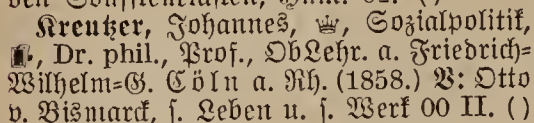 den Souffleurkasten, Humt. 02. ()
Kreutzer, Johannes, ♕, Sozialpolitik,
Dr. phil., Prof., ObLehr. a. Friedrich-
Wilhelm-G. Cöln a. Rh. (1858.) V: Otto
v. Bismarck, s. Leben u. s. Werk 00 II. ()